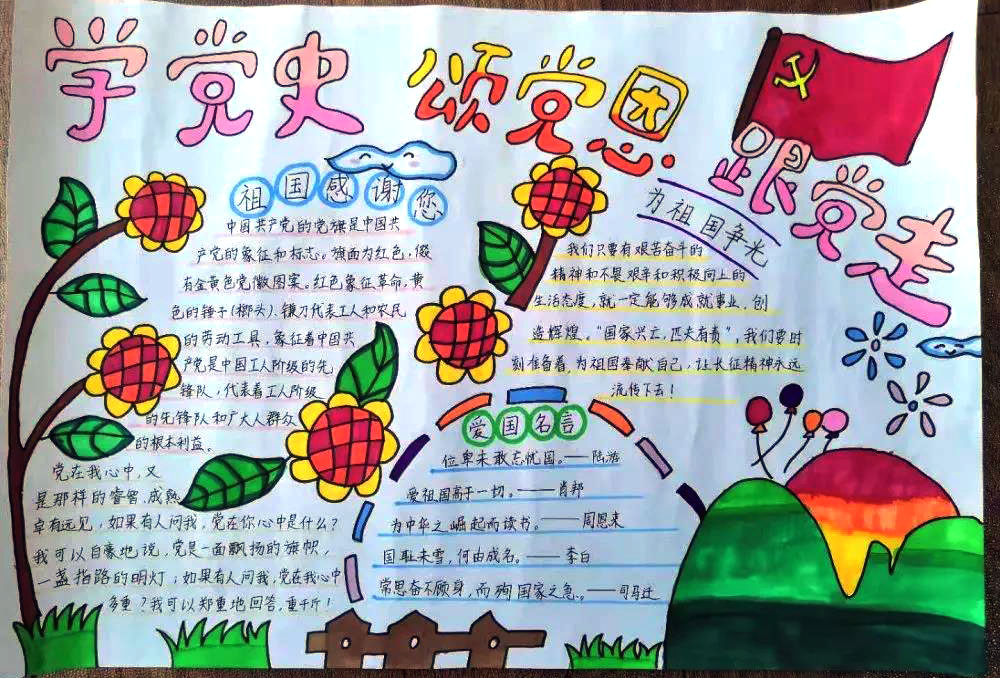 学党史 颂党恩 跟党走
祖国感谢您
中国共产党的党旗是中国共
产党的象征和标志。旗面为红色,缀
有金黄色党徽图案。红色象征革命,黄
色的锤子(榔头)、镰刀代表工人和农民
的劳动工具,象征着中国共
产党是中国工人阶级的先
锋队,代表着工人阶级
的先锋队和广大人群众
的根本利益。
党在我心中,又
是那样的睿智,成熟
卓有远见,如果有人问我,党在你心中是什么?
我可以自豪地说,党是一面飘扬的旗帜,
一盏指路的明灯;如果有人问我,党在我心中
多重?我可以郑重地回答,重千斤!
为祖国争光
我们只要有艰苦奋斗的
精神和不畏艰辛和积极向上的
生活态度,就一定能够成就事业,创
造辉煌,“国家兴亡,匹夫有责”,我们要时
刻准备着,为祖国奉献自己,让长征精神永远
流传下去!
爱国名言
位卑未敢忘忧国。——陆游
爱祖国高于一切。——肖邦
为中华之崛起而读书。——周恩来
国耻未雪,何由成名。——李白
常思奋不顾身,而殉国家之急。——司马迁